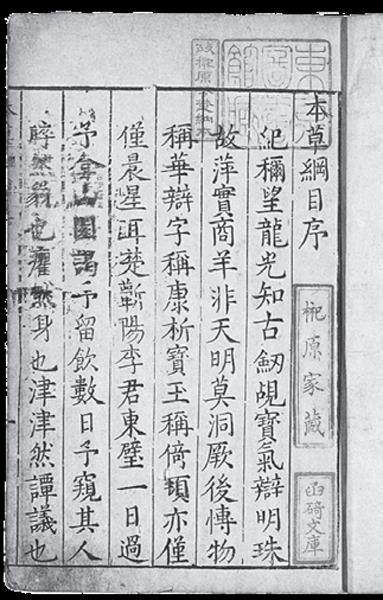 本草綱目序
紀穪望龍光知古釼覘寶氣辯明珠
故萍實商羊非天明莫洞厥後愽物
稱華辯字稱康析寶玉稱倚頓亦僅
僅晨星耳楚蘄陽李君東璧一日過
予弇山園謁予留飲數日予窺其人
睟然貌也癯然身也津津然譚議也
故榊原芳埜納本
榊原家藏
函碕文庫